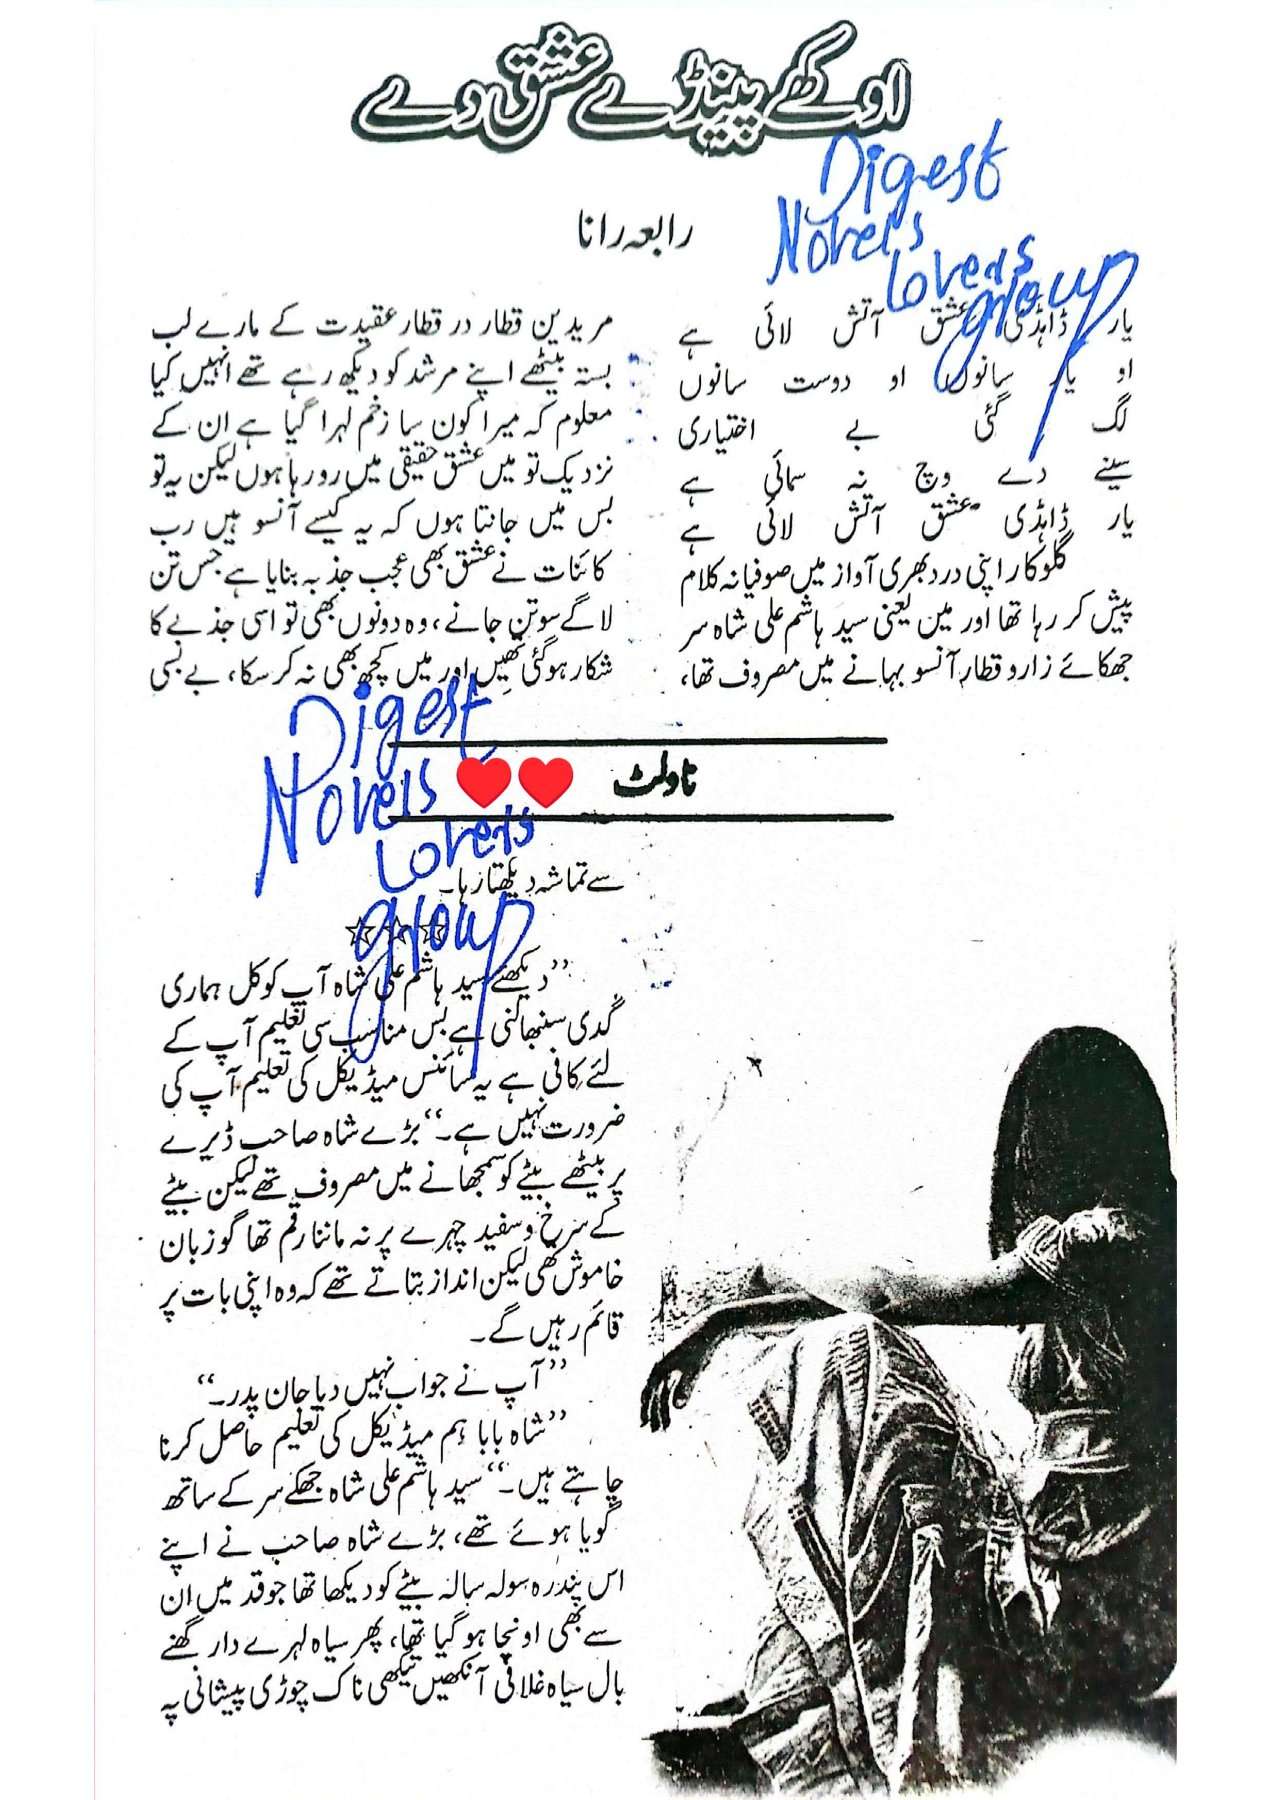 اوکھے پینڈے عشق دے
Digest
Novels
Lovers
group
رابعہ رانا
یار ڈاہڈی عشق آتش لائی ہے
او یار سانوں او دوست سانوں
لگ گئی بے اختیاری
سینے دے وچ نہ سمائی ہے
یار ڈاہڈی عشق آتش لائی ہے
گلوکار اپنی درد بھری آواز میں صوفیانہ کلام
پیش کر رہا تھا اور میں یعنی سید ہاشم علی شاہ سر
جھکائے زار و قطار آنسو بہانے میں مصروف تھا،
مریدین قطار در قطار عقیدت کے مارے لب
بستہ بیٹھے اپنے مرشد کو دیکھ رہے تھے انہیں کیا
معلوم کہ میرا کون سا زخم لہرا گیا ہے ان کے
نزدیک تو میں عشق حقیقی میں رو رہا ہوں لیکن یہ تو
بس میں جانتا ہوں کہ یہ کیسے آنسو ہیں رب
کائنات نے عشق بھی عجب جذبہ بنایا ہے جس تن
لاگے سو تن جانے، وہ دونوں بھی تو اسی جذبے کا
شکار ہو گئی تھیں اور میں کچھ بھی نہ کر سکا، بے بسی
Digest
Novels
Lovers
group
ناولٹ
سے تماشہ دیکھتا رہا۔
☆☆☆
”دیکھئے سید ہاشم علی شاہ آپ کو کل ہماری
گدی سنبھالنی ہے بس مناسب سی تعلیم آپ کے
لئے کافی ہے یہ سائنس میڈیکل کی تعلیم آپ کی
ضرورت نہیں ہے۔“ بڑے شاہ صاحب ڈیرے
پر بیٹھے بیٹے کو سمجھانے میں مصروف تھے لیکن بیٹے
کے سرخ و سفید چہرے پر نہ ماننا رقم تھا گو زبان
خاموش تھی لیکن انداز بتاتے تھے کہ وہ اپنی بات پر
قائم رہیں گے۔
”آپ نے جواب نہیں دیا جان پدر۔“
”شاہ بابا ہم میڈیکل کی تعلیم حاصل کرنا
چاہتے ہیں۔“ سید ہاشم علی شاہ جھکے سر کے ساتھ
گویا ہوئے تھے، بڑے شاہ صاحب نے اپنے
اس پندرہ سولہ سالہ بیٹے کو دیکھا تھا جو قد میں ان
سے بھی اونچا ہو گیا تھا، پھر سیاہ لہرے دار گھنے
بال سیاہ غلافی آنکھیں تیکھی ناک چوڑی پیشانی پہ